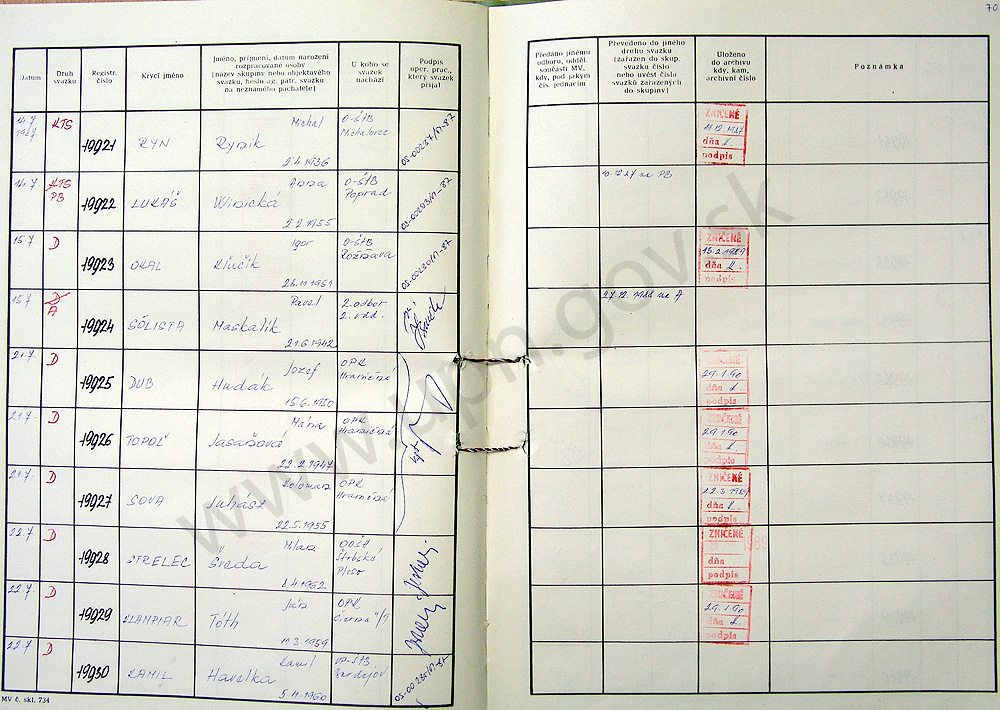 70
Datum
Druh
svazku
Registr.
číslo
Krycí jméno
Jméno, příjmení, datum narození
rozpracované osoby
[název skupiny nebo objektového
svazku, heslo ag. pátr. svazku
na neznámého pachatele]
U koho se
svazek
nachází
Podpis
oper. prac.,
který svazek
přijal
Předáno jinému
odboru, odděl.
součásti MV,
kdy, pod jakým
čís. jednacím
Převedeno do jiného
druhu svazku
[zařazen do skup.
svazku číslo
nebo uvést čísla
svazků zařazených
do skupiny]
Uloženo
do archivu
kdy, kam,
archivní číslo
Poznámka
14.7.
1987
KTS
19921
RYN
Michal
Rybik
2.4.1936
O-ŠtB
Michalovce
ZNIČENÉ
11.12.1987
dňa
podpis
14.7.
KTS
PB
19922
LUKÁŠ
Anna
2.2.1955
O-ŠtB
Poprad
10.12.87 na PB
15.7
D
19923
OKAL
Igor
Kľučik
26.11.1951
O-ŠtB
Rožňava
ZNIČENÉ
13.2.1989
dňa
podpis
15.7.
D
A
19924
SÓLISTA
Pavel
Maskalik
21.6.1942
2. odbor
2. odd.
27.12.1988 na A
21.7.
D
19925
DUB
Jozef
Hudák
15.6.1950
OPK
Hraničná
ZNIČENÉ
29.1.90
dňa
podpis
21.7.
D
19926
TOPOĽ
Mária
22.2.1947
OPK
Hraničná
ZNIČENÉ
29.1.90
dňa
podpis
21.7
D
19927
SOVA
Koloman
Juhász
22.5.1955
OPK
Hraničná
ZNIČENÉ
22.3.1989
dňa
podpis
22.7.
D
19928
STRELEC
Milan
Šveda
2.4.1962
Štrbské
Pleso
ZNIČENÉ
dňa
podpis
22.7.
D
19929
KLAMPIAR
Ján
Tóth
11.3.1959
OPK
Čierna n/T
ZNIČENÉ
29.1.90
dňa
podpis
22.7.
D
19930
KAMIL
Kamil
Havelka
5.11.1960
Bardejov
MV č. skl. 734
www.upn.gov.sk